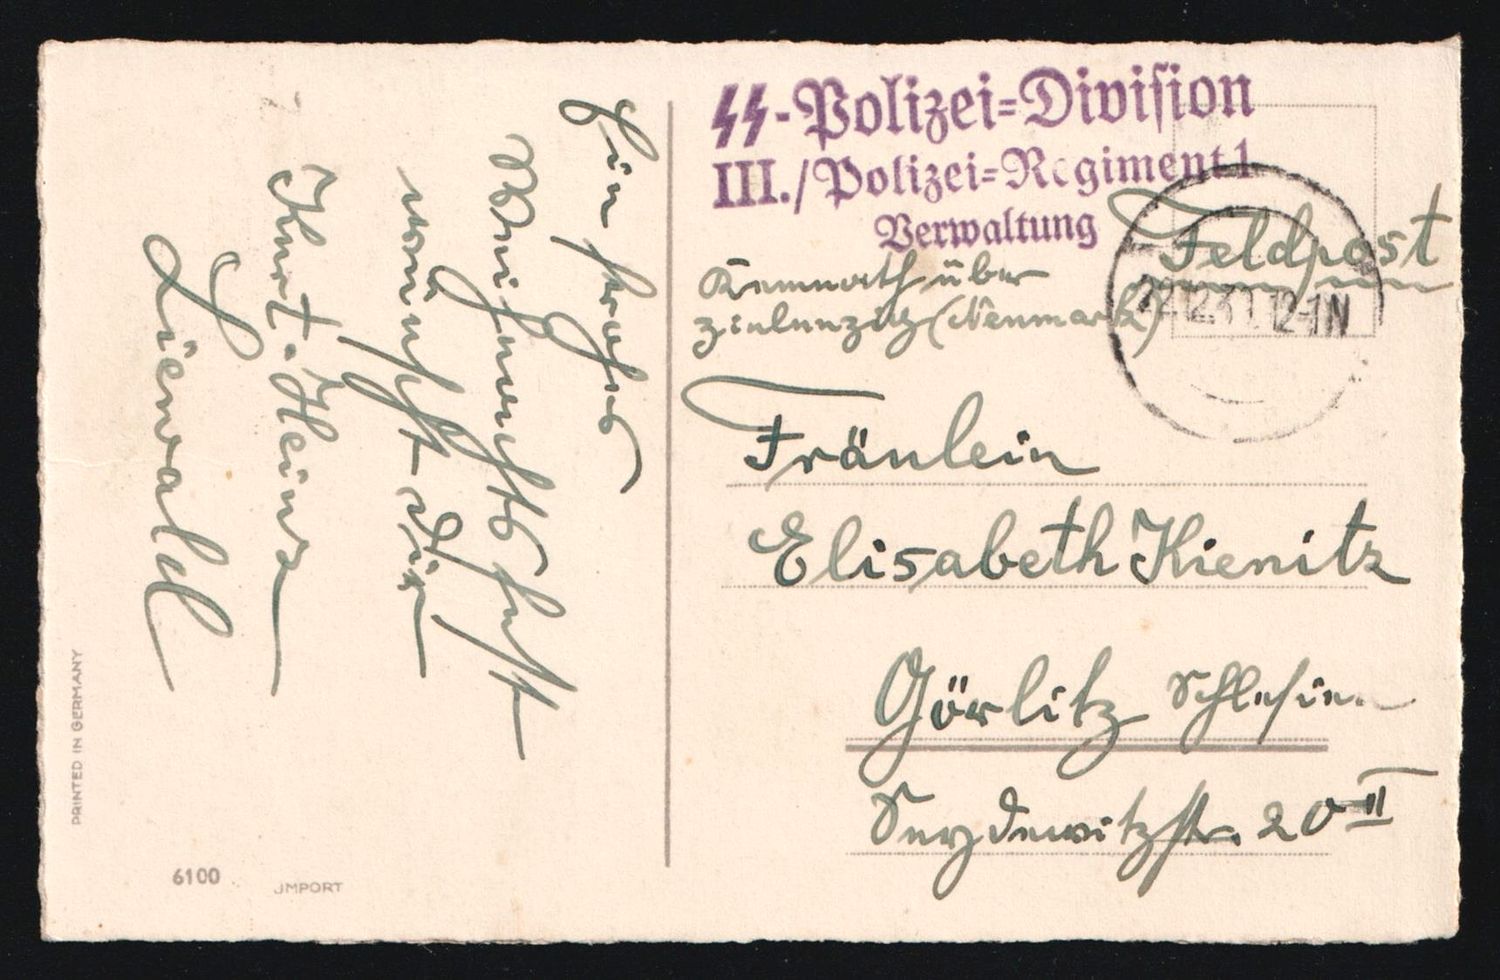 Ein frohes
Weihnachtsfest
wünscht Dir
Kurt-Heinz
Lienwald
PRINTED IN GERMANY
6100 JMPORT
SS-Polizei=Division
III./Polizei=Regiment 1
Verwaltung
Feldpost
22.12.39 12-1N
Kemnath über
Zielenzig (Neumark)
Fräulein
Elisabeth Kienitz
Görlitz Schlesien
Seydewitzstr. 20 II